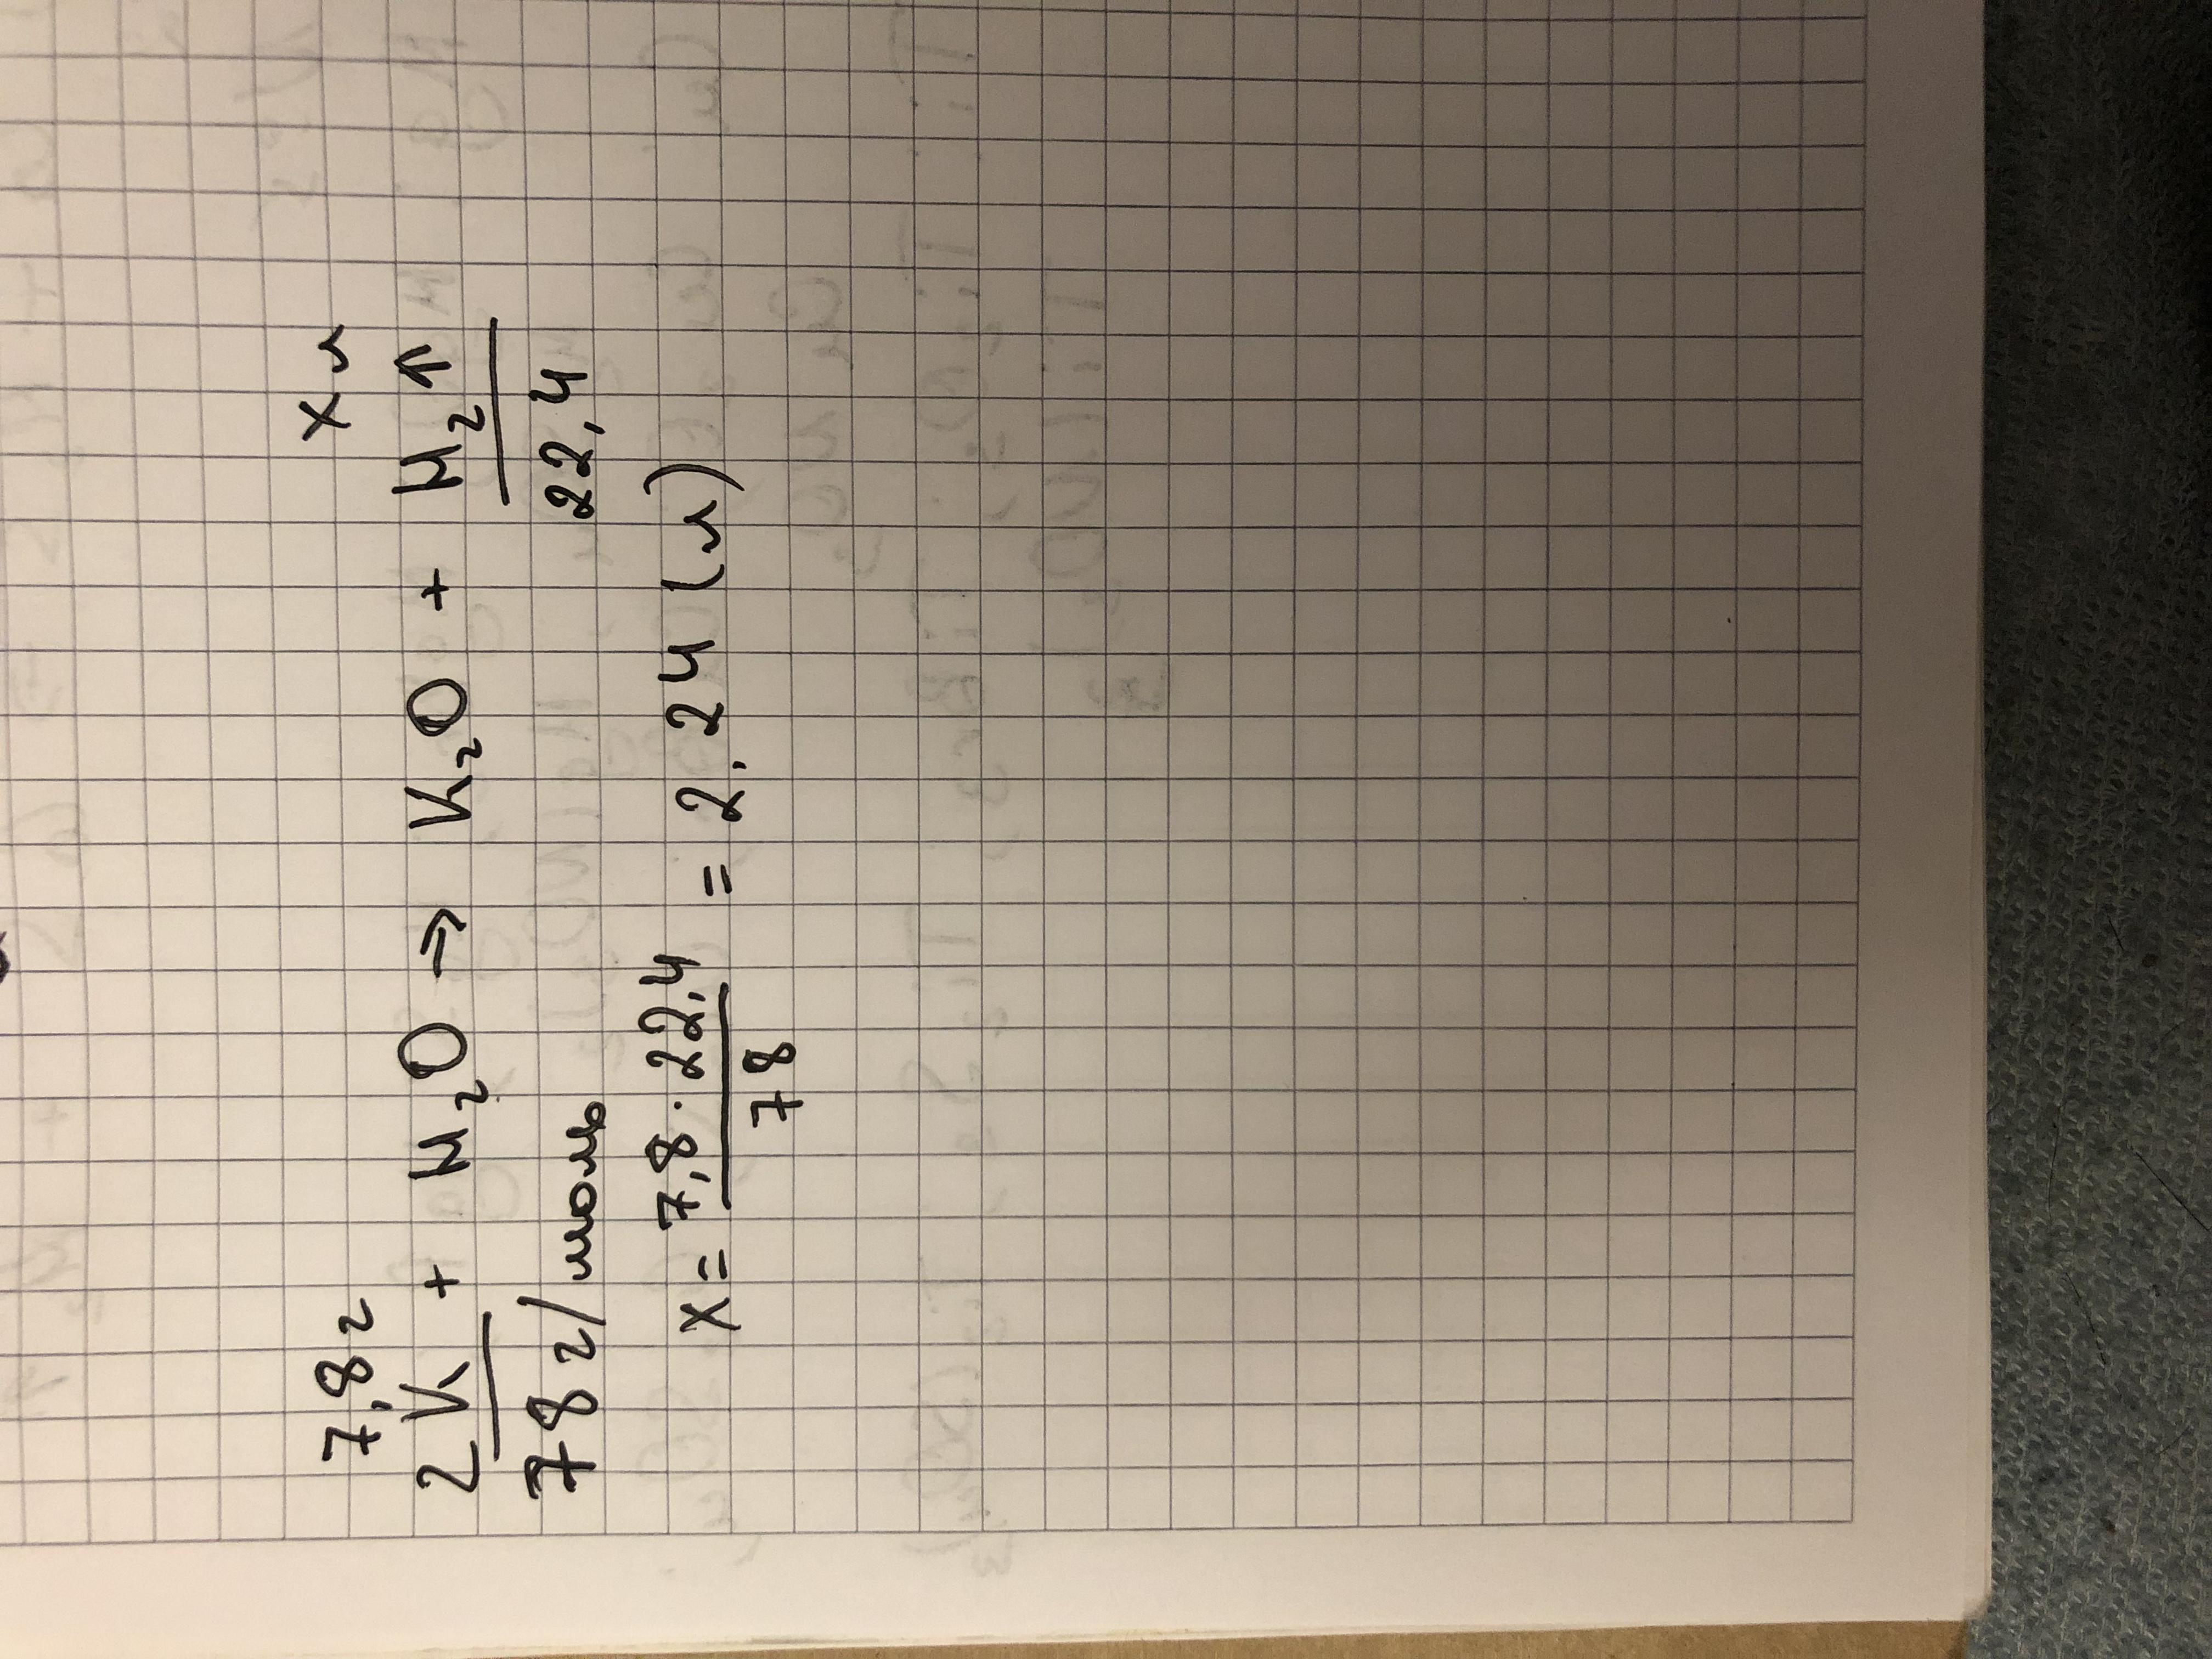 7,8 г x л
2K + H₂O ⇒ K₂O + H₂↑
78 г/моль 22,4
x = 7,8 · 22,4 / 78 = 2,24 (л)